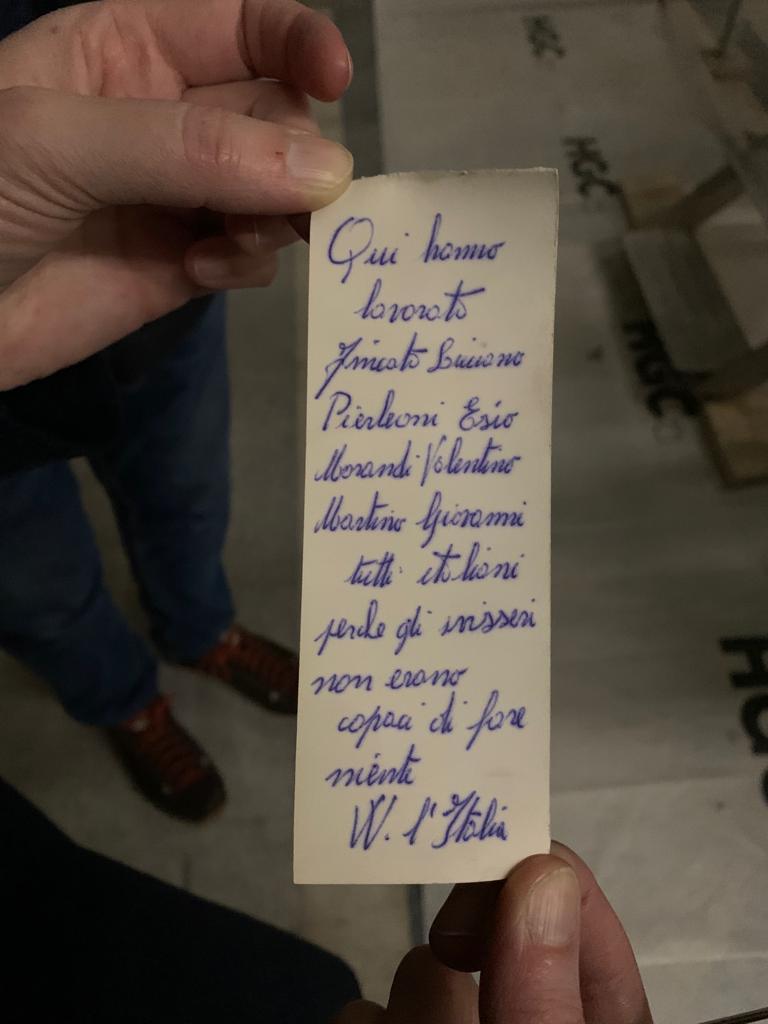 Qui hanno
lavorato
Fincato Luciano
Pierleoni Esio
Morandi Valentino
Martino Giovanni
tutti italiani
perche gli svisseri
non erano
capaci di fare
niente
W. l'Italia
HGC
HGC
HGC
HGC